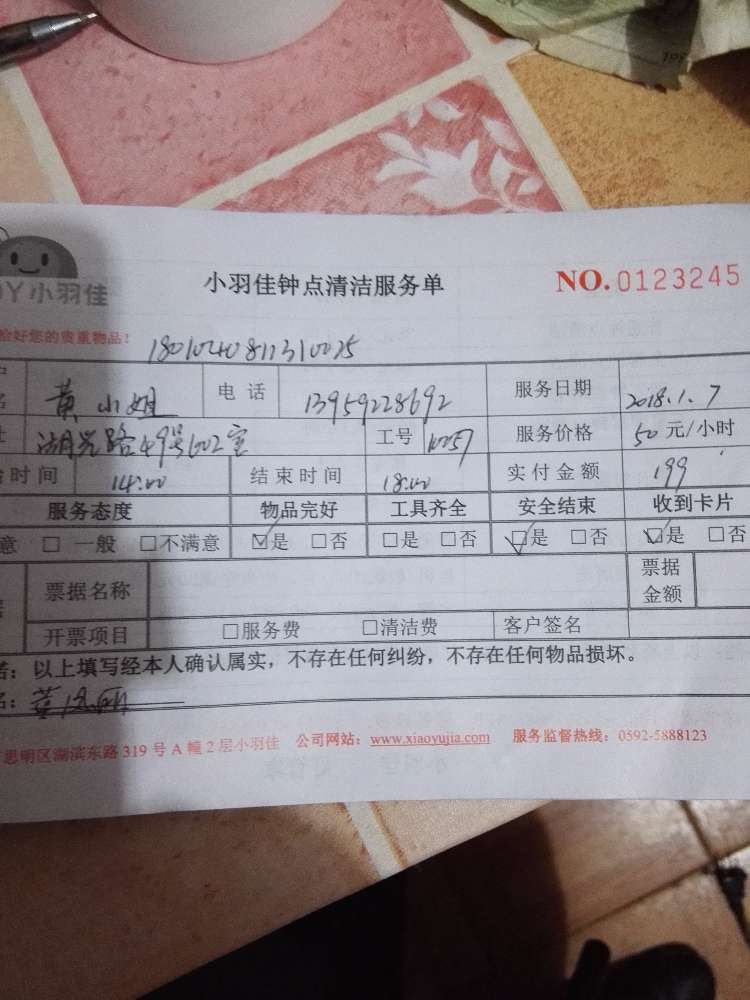 小羽佳
小羽佳钟点清洁服务单
NO.0123245
检好您的贵重物品!
名 黄小姐 电话 13959228692 服务日期 2018.1.7
址 49号602室 工号 服务价格 50元/小时
时间 14:00 结束时间 18:00 实付金额 199
服务态度 物品完好 工具齐全 安全结束 收到卡片
意 □一般 □不满意 ☑是 □否 □是 □否 ☑是 □否 ☑是 □否
票据名称 票据金额
开票项目 □服务费 □清洁费 客户签名
诺:以上填写经本人确认属实,不存在任何纠纷,不存在任何物品损坏。
名:黄
思明区湖滨东路319号A幢2层小羽佳 公司网站:www.xiaoyujia.com 服务监督热线:0592-5888123